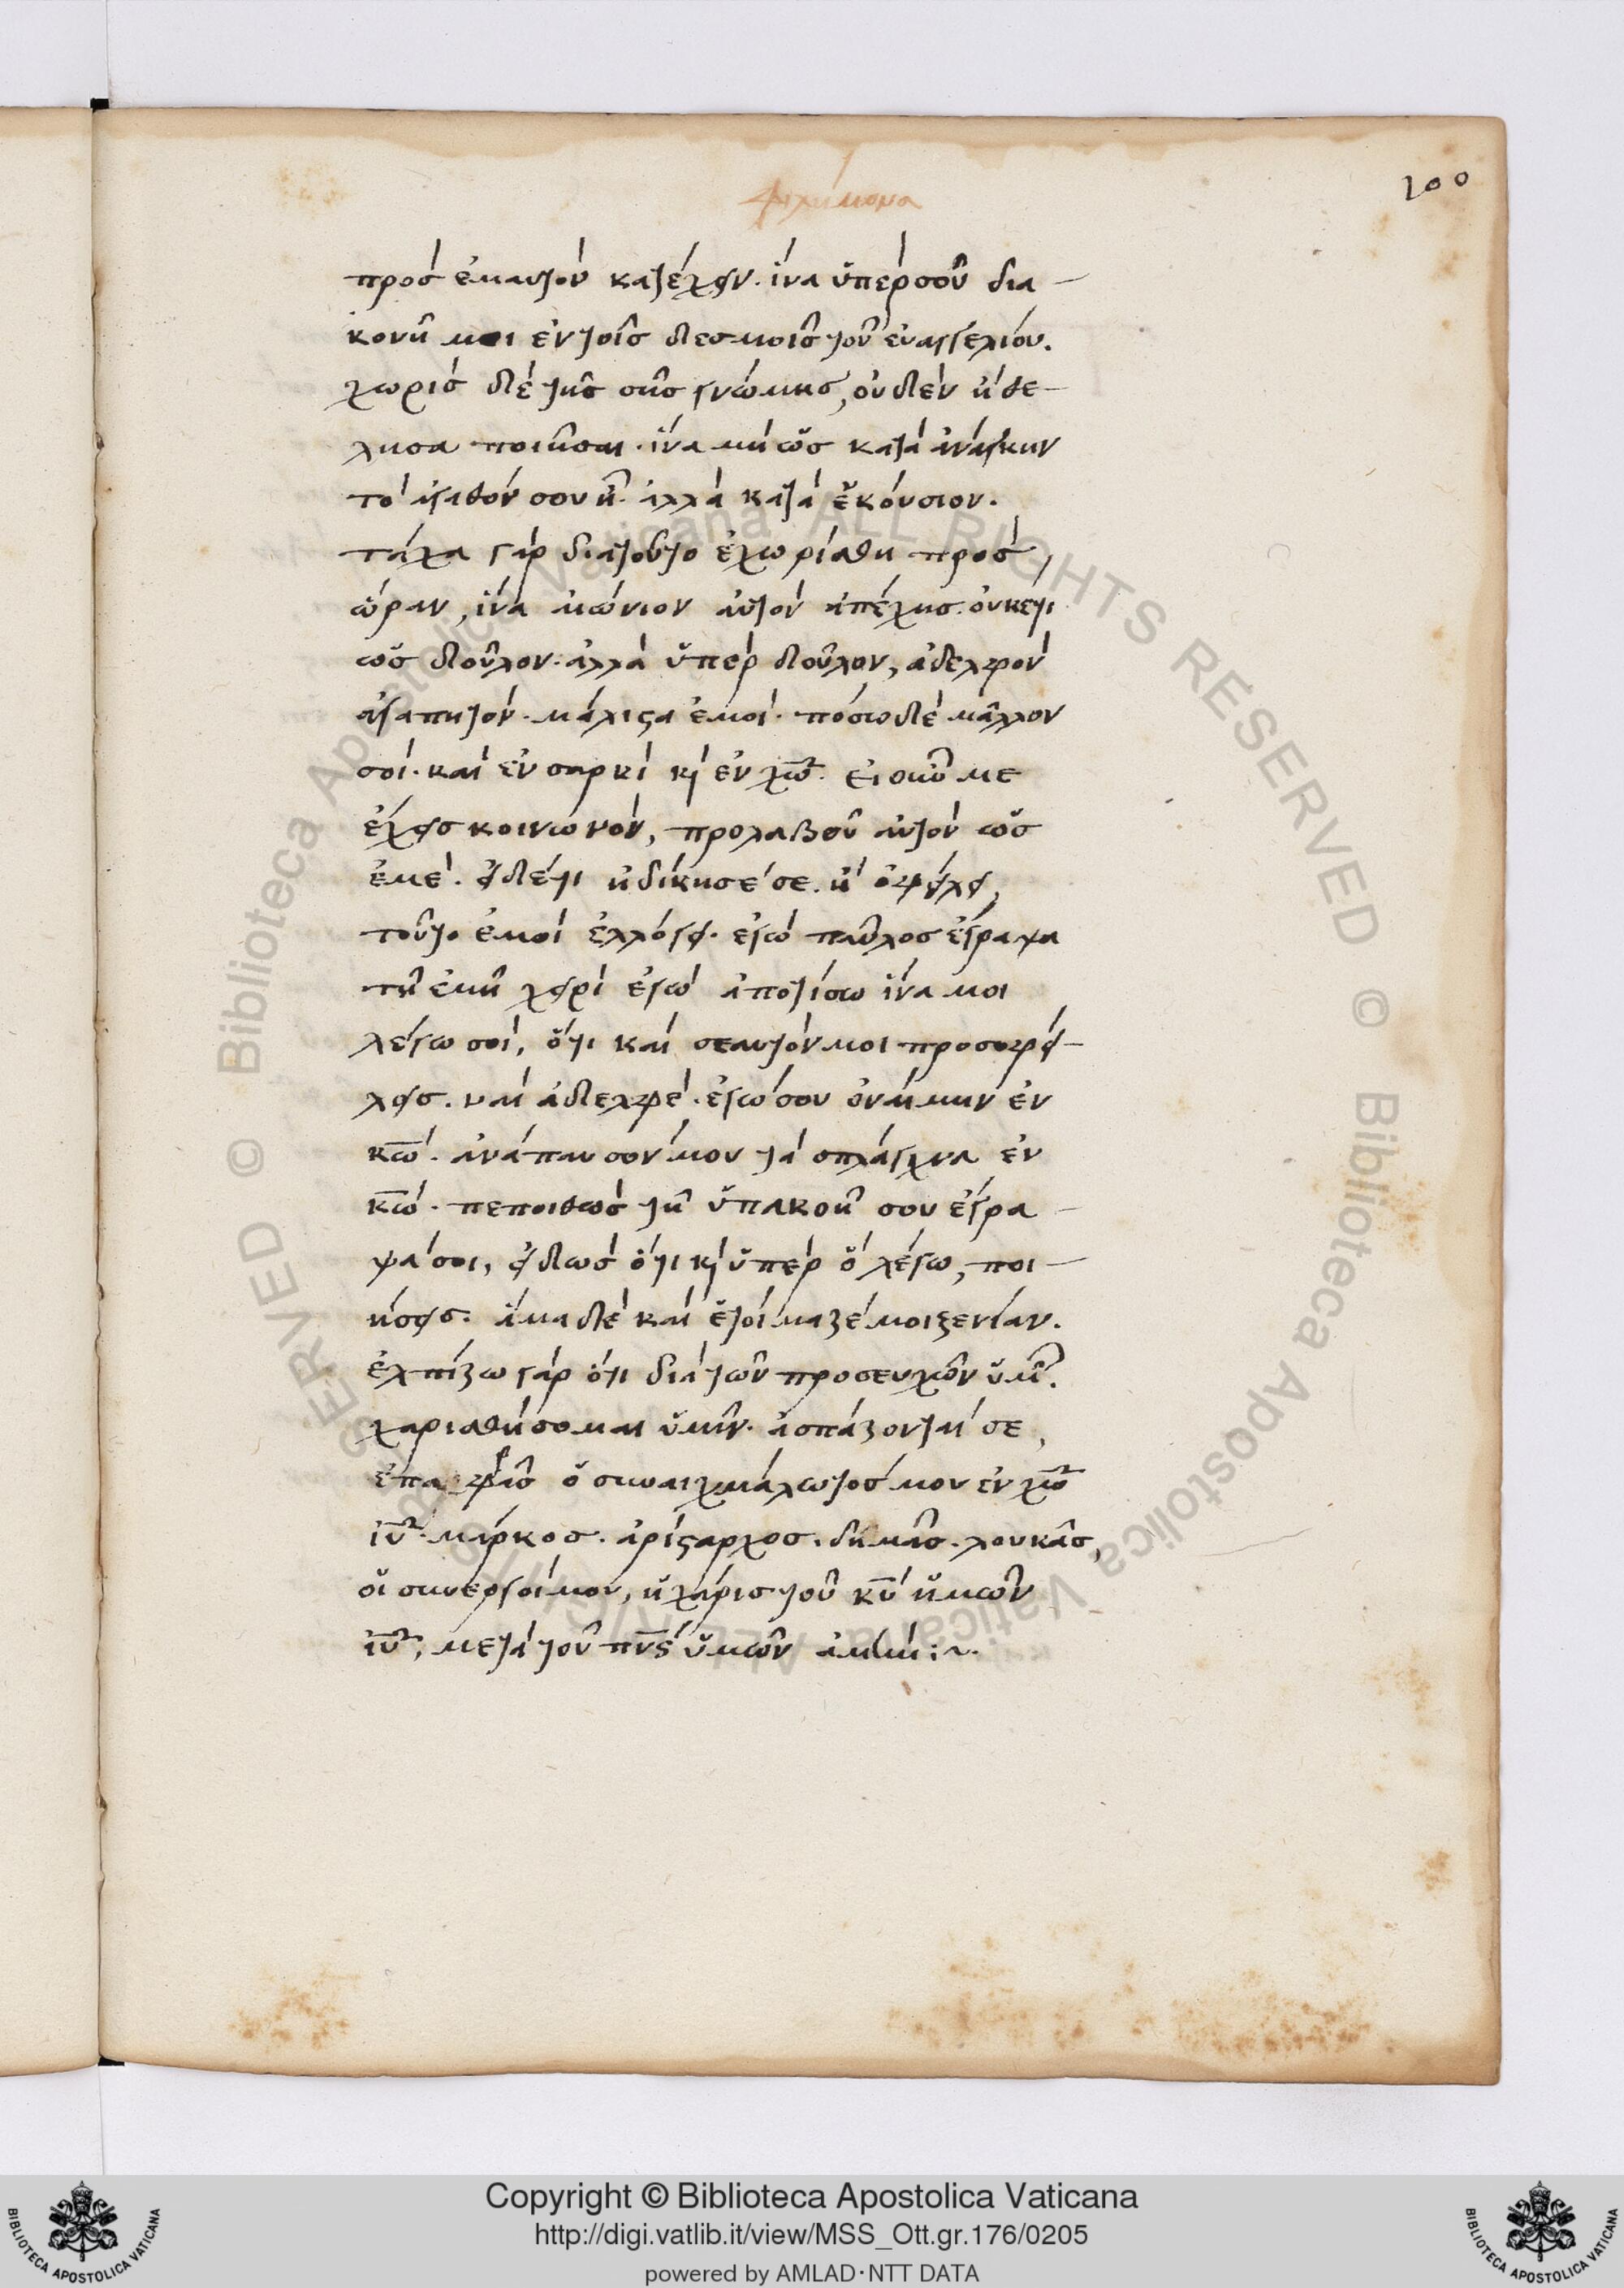 φιλήμονα
200
πρὸς ἐμαυτὸν κατέχειν. ἵνα ὑπὲρ σοῦ δια-
κονῆ μοι ἐν τοῖς δεσμοῖς τοῦ εὐαγγελίου.
χωρὶς δὲ τῆς σῆς γνώμης, οὐδὲν ἠθε-
λησα ποιῆσαι. ἵνα μὴ ὡς κατὰ ἀνάγκην
τὸ ἀγαθόν σου ἦ. ἀλλὰ κατὰ ἑκούσιον.
τάχα γὰρ διατοῦτο ἐχωρίσθη πρὸς,
ὥραν, ἵνα αἰώνιον αὐτὸν ἀπέχης. οὐκέτι
ὡς δοῦλον. ἀλλὰ ὑπὲρ δοῦλον, ἀδελφὸν
ἀγαπητὸν. μάλιστα ἐμοὶ. πόσω δὲ μᾶλλον
σοὶ. καὶ ἐν σαρκὶ κὶ ἐν χω. εἰ οὖν με
ἔχεις κοινωνὸν, προλαβοῦ αὐτὸν ὡς
ἐμὲ. εἰ δέ τι ἠδίκησέ σε. ἢ ὀφείλει,
τοῦτο ἐμοὶ ἐλλόγει. ἐγὼ παῦλος ἔγραψα
τῆ ἐμῆ χειρὶ ἐγὼ ἀποτίσω ἵνα μοι
λέγω σοὶ, ὅτι καὶ σεαυτόν μοι προσοφεί-
λεις. ναὶ ἀδελφὲ. ἐγώ σου ὀναίμην ἐν
κω. ἀνάπαυσόν μου τὰ σπλάγχνα ἐν
κω. πεποιθὼς τῆ ὑπακοῆ σου ἔγρα-
ψά σοι, εἰδὼς ὅτι κὶ ὑπὲρ ὃ λέγω, ποι-
ήσεις. ἅμα δὲ καὶ ἑτοίμαζέ μοι ξενίαν.
ἐλπίζω γὰρ ὅτι διὰ τῶν προσευχῶν ὑμ.
χαρισθήσομαι ὑμῖν. ἀσπάζονταί σε,
ἐπαφρᾶς ὁ συναιχμάλωτός μου ἐν χω
ιυ. μάρκος. ἀρίσταρχος. δημᾶς. λουκᾶς,
οἱ συνεργοί μου, ἡ χάρις τοῦ κυ ἡμῶν
ιυ, μετὰ τοῦ πνς ὑμῶν ἀμήν:~.
Copyright © Biblioteca Apostolica Vaticana
http://digi.vatlib.it/view/MSS_Ott.gr.176/0205
powered by AMLAD·NTT DATA